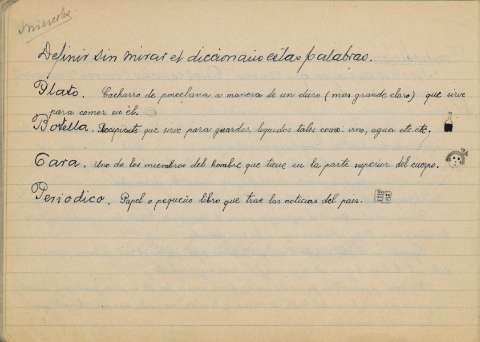 miércoles
Definir sin mirar el diccionario estas palabras.
Plato. Cacharro de porcelana a manera de un duro (mas grande claro) que sirve
para comer en él.
Botella. Recipiente que sirve para guardar liquidos tales como vino, agua etc. etc.
Cara. Uno de los miembros del hombre que tiene en la parte superior del cuerpo.
Periodico. Papel o pequeño libro que trae las noticias del pais.